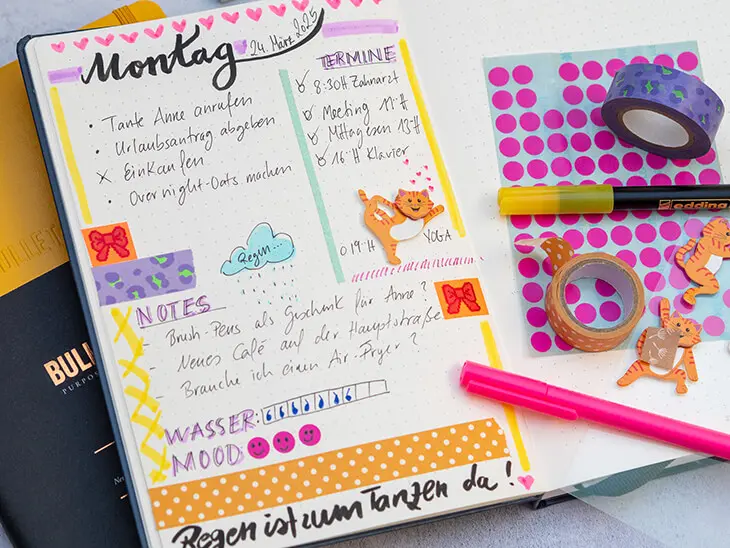 Montag
24. März 2025
• Tante Anne anrufen
• Urlaubsantrag abgeben
x Einkaufen
• Overnight-Oats machen
TERMINE
8:30H Zahnarzt
Meeting 11°°H
Mittagessen 13°°H
16°°H Klavier
O 19°°H YOGA
Regen...
NOTES
- Brush-Pens als Geschenk für Anne?
- Neues Café auf der Hauptstraße
- Brauche ich einen Air-Fryer?
WASSER:
MOOD:
Regen ist zum Tanzen da!
edding
BULLET
BULL
PURPO